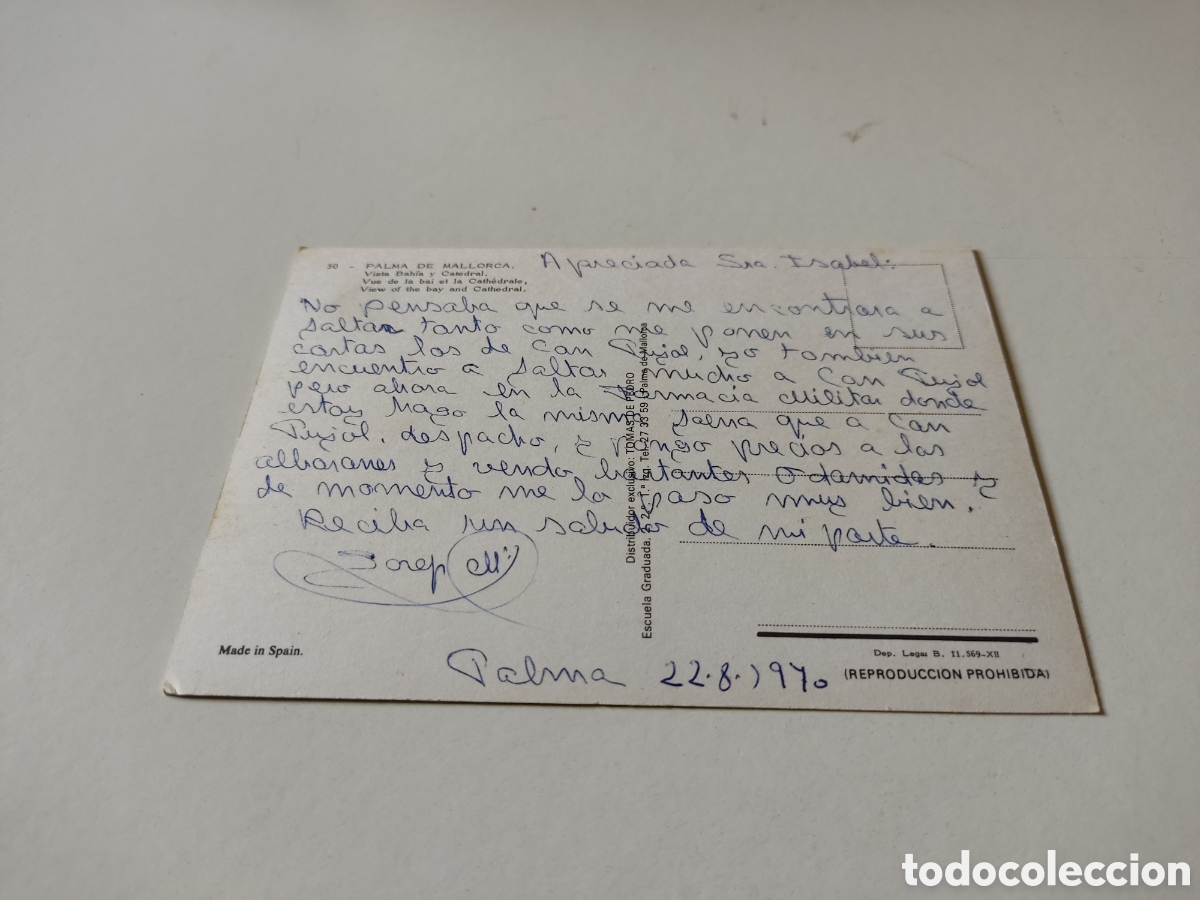 50 - PALMA DE MALLORCA.
Vista Bahía y Catedral.
Vue de la bai et la Cathédrale,
View of the bay and Cathedral.
Apreciada Sra. Isabel:
No pensaba que se me encontrara a
saltar tanto como me ponen en sus
cartas los de Can Pujol, yo tambien
encuentro a saltar mucho a Can Pujol
pero ahora en la Farmacia Militar donde
estoy hago la misma faena que a Can
Pujol. despacho, y pongo precios a las
albaranes y vendo bastantes Odamidas y
de momento me lo paso muy bien.
Reciba un saludo de mi parte.
Josep Mª
Palma 22.8.1970
Distribuidor exclusivo: TOMAS DE PEDRO
Escuela Graduada, Tel. 27 33 59 Palma de Mallorca
Made in Spain.
Dep. Legal B. 11.569-XII
(REPRODUCCION PROHIBIDA)
todocoleccion